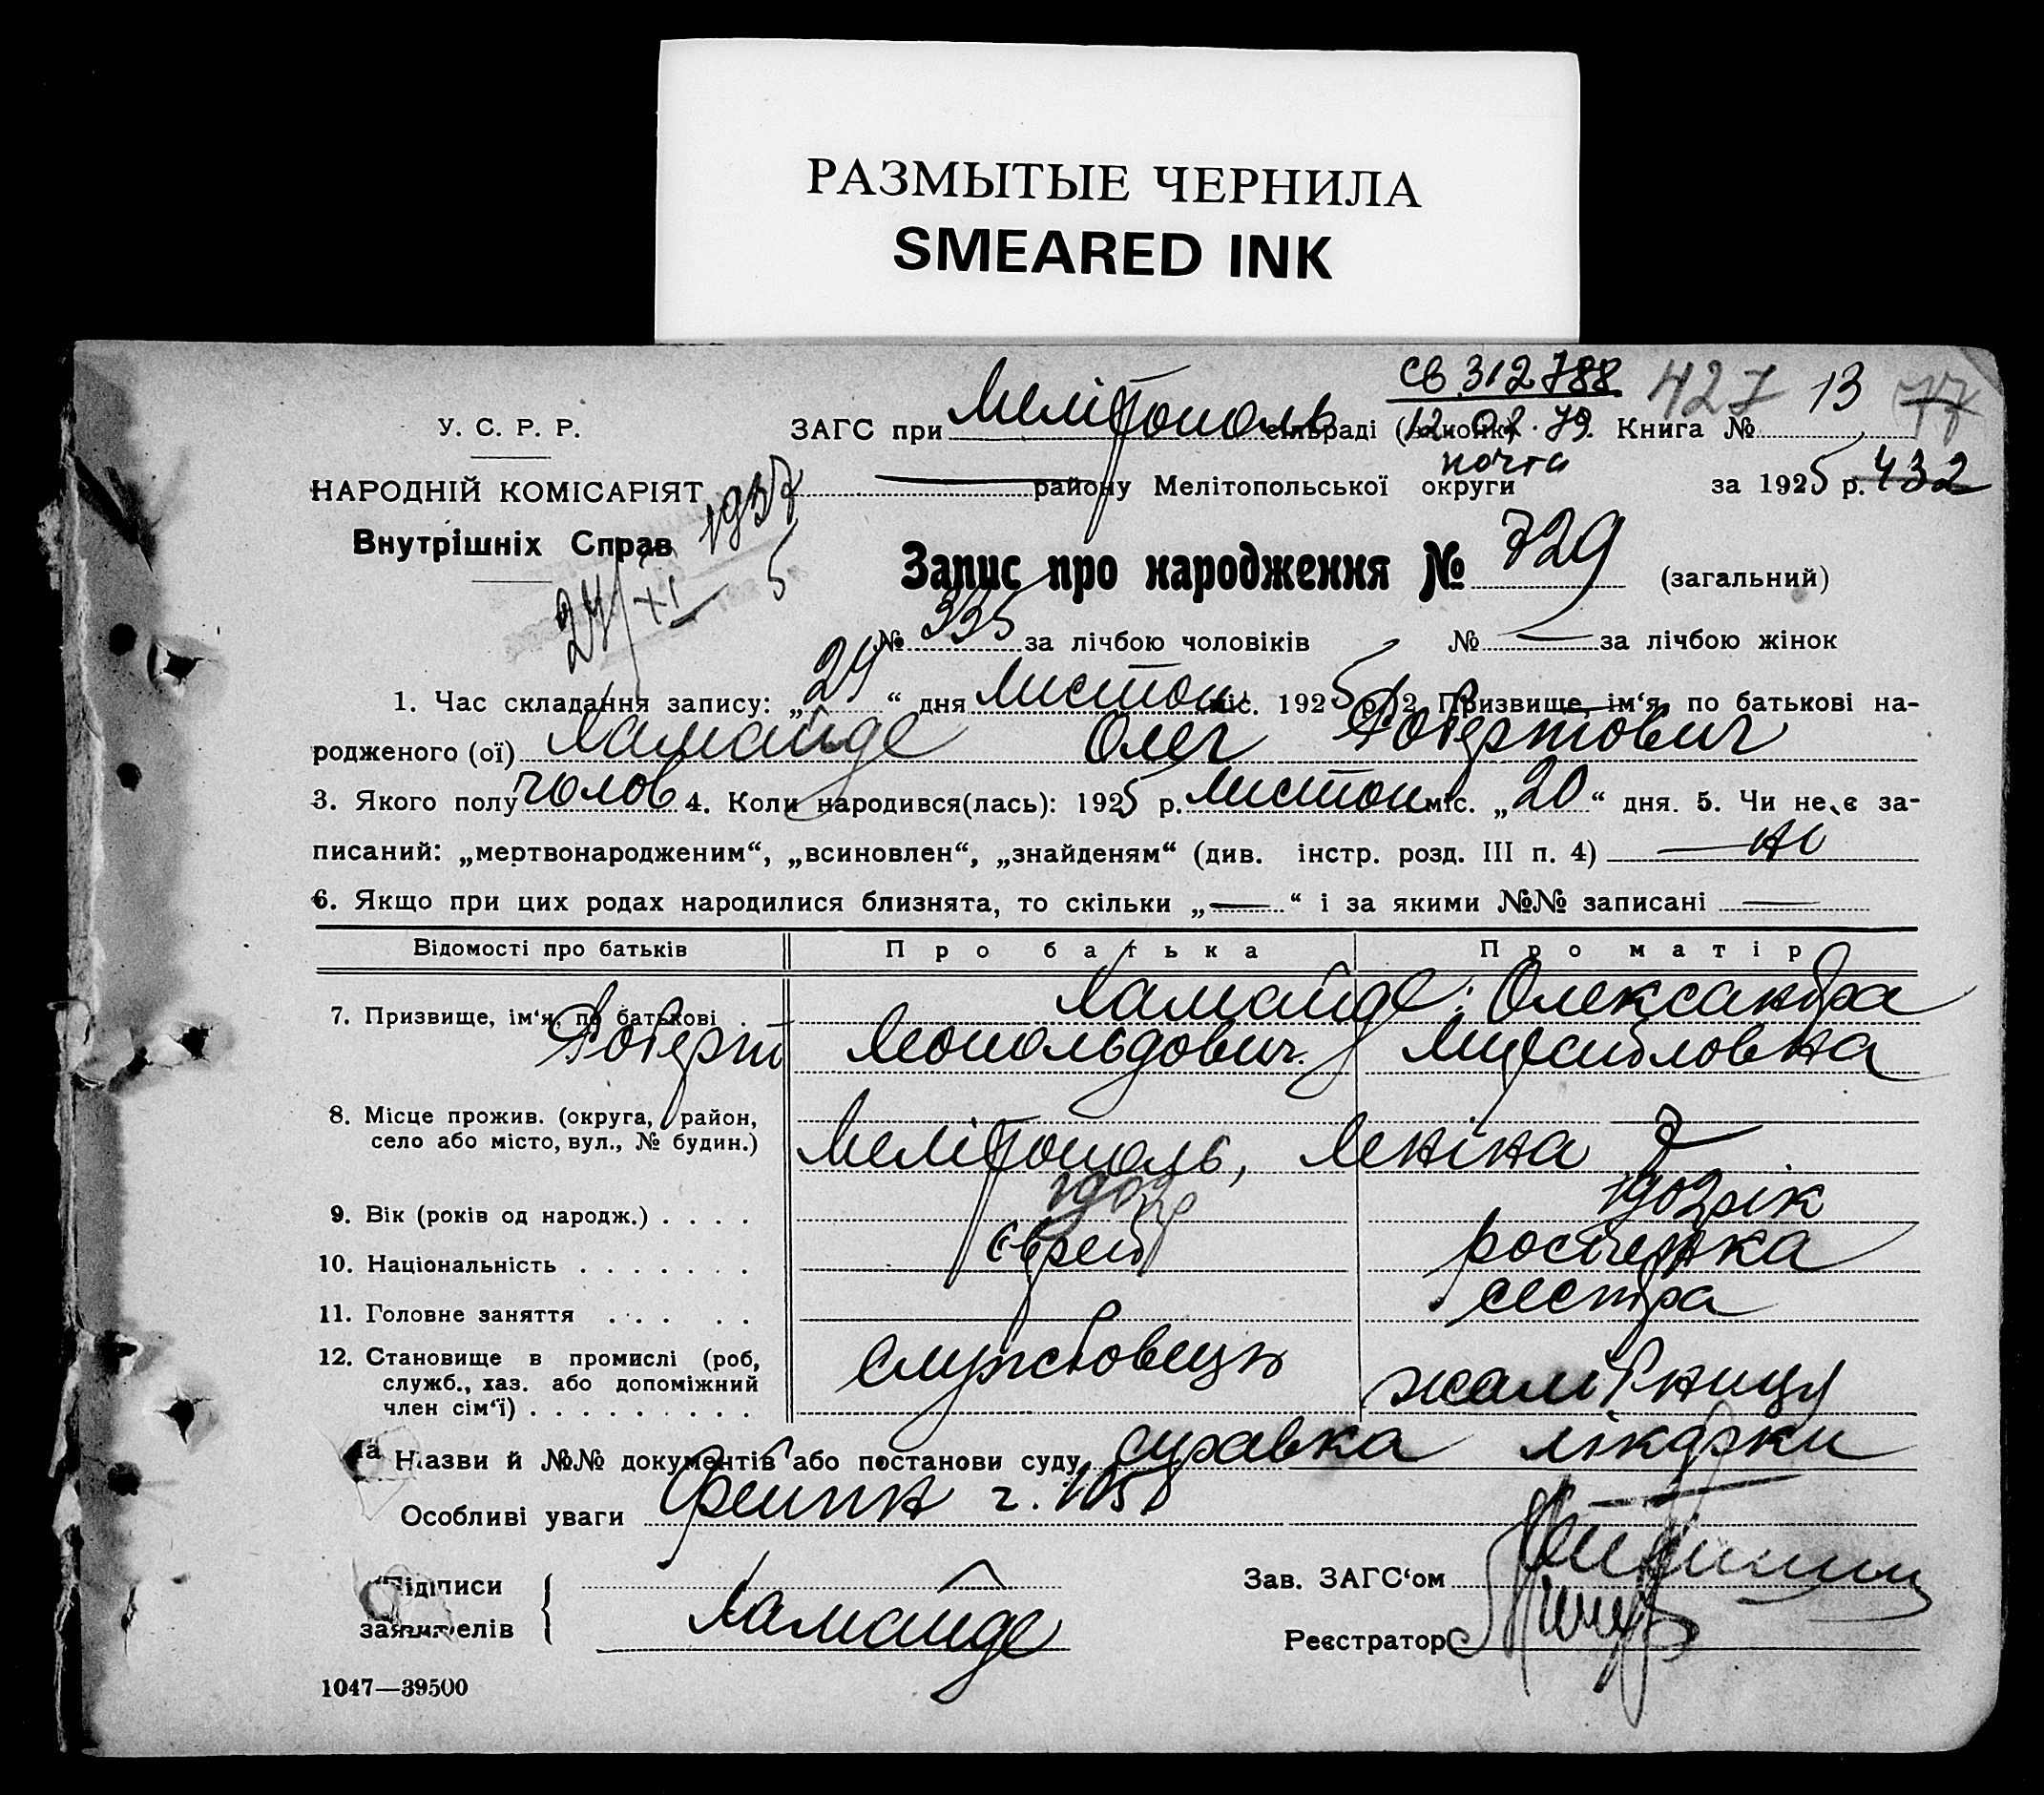 РАЗМЫТЫЕ ЧЕРНИЛА
SMEARED INK
св. 312788 427 13 77
У. С. Р. Р. ЗАГС при Мелітополь сільраді 12.02.79. Книга №
почта
НАРОДНІЙ КОМІСАРІЯТ району Мелітопольської округи за 1925 р. 432
1937
Внутрішніх Справ
24/XI 5
Запис про народження № 729 (загальний)
№ 335 за лічбою чоловіків № — за лічбою жінок
1. Час складання запису: „24“ дня листоп. міс. 1925 р. 2. Призвище, ім‘я, по батькові на-
родженого (ої) Ламайде Олег Робертович
3. Якого полу чолов 4. Коли народився(лась): 1925 р. листоп міс. „20“ дня. 5. Чи не є за-
писаний: „мертвонародженим“, „всиновлен“, „знайденям“ (див. інстр. розд. III п. 4) — ні
6. Якщо при цих родах народилися близнята, то скільки „—“ і за якими №№ записані —
Відомості про батьків Про батька Про матір
7. Призвище, ім‘я, по батькові Ламайде Олександра
Роберт Леопольдович.
8. Місце прожив. (округа, район,
село або місто, вул., № будин.) Мелітополь, Леніна 7
9. Вік (років од народж.) . . . . 1902р 1902рік
10. Національність . . . . . . . Єврей
11. Головне заняття . . . . . сестра
12. Становище в промислі (роб,
служб., хаз. або допоміжний
член сім‘ї) . . . . . . . . . Службовець
Назви й №№ документів або постанови суду справка лікарки
Особливі уваги
Підписи
заявителів Ламайде
Зав. ЗАГС‘ом
Реєстратор
1047—39500